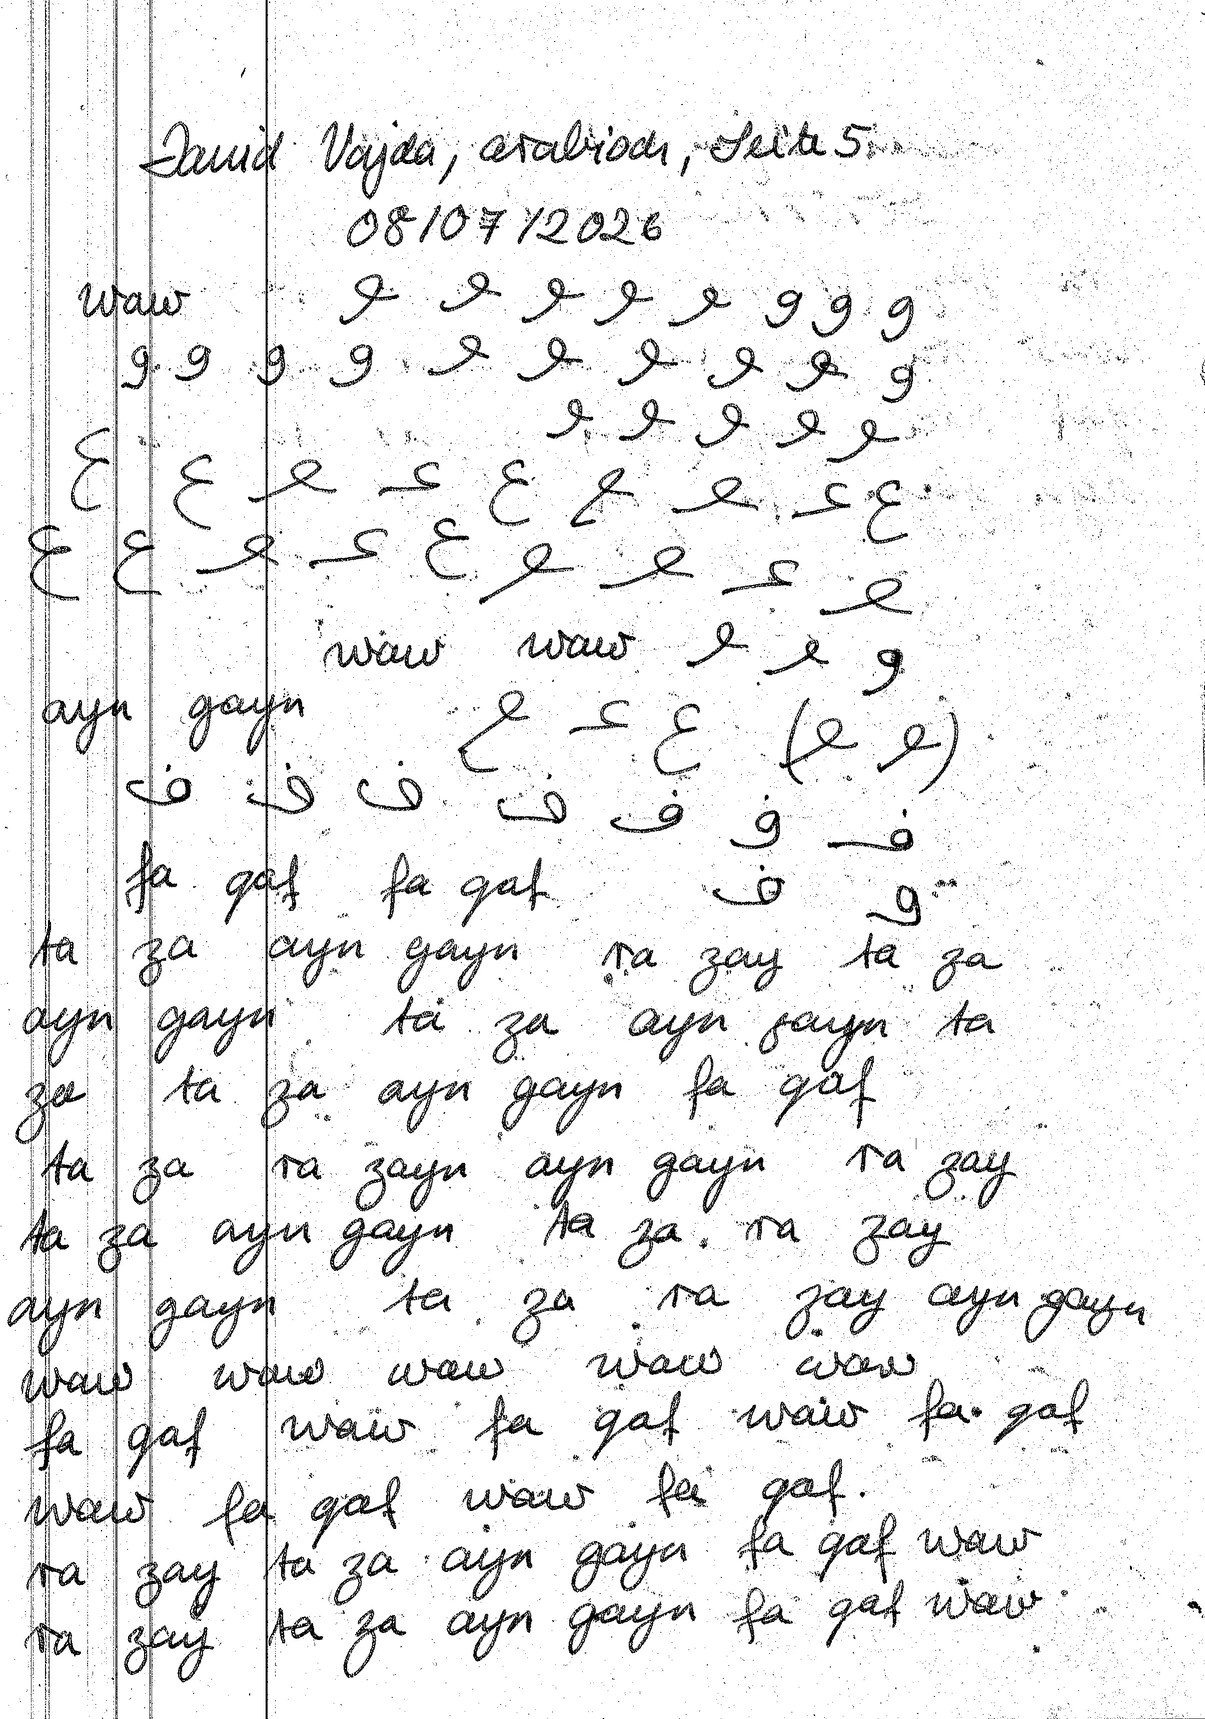 David Vajda, arabisch, Seite 5
08/07/2026
waw و و و و و و و و
و و و و و و و و و و
و و و و و
ع ع ـعـ عـ ع ـع ـعـ عـ ع
ع ع ـعـ عـ ع ـع ـعـ عـ ـعـ
waw waw و و و
ayn gayn ـع عـ ع (ـعـ ـعـ)
ف ف ف ف ف ف ف
fa qaf fa qaf ف و
ta za ayn gayn ra zay ta za
ayn gayn ta za ayn gayn ta
za ta za ayn gayn fa qaf
ta za ra zayn ayn gayn ra zay
ta za ayn gayn ta za ra zay
ayn gayn ta za ra zay ayn gayn
waw waw waw waw waw
fa qaf waw fa qaf waw fa qaf
waw fa qaf waw fa qaf.
ra zay ta za ayn gayn fa qaf waw
ra zay ta za ayn gayn fa qaf waw